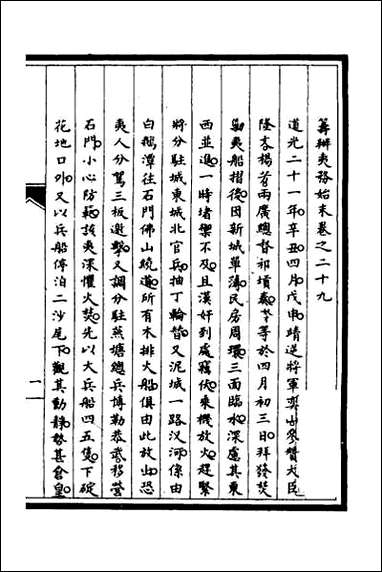 籌辦夷務始末卷之二十九
道光二十一年辛丑四月戊申靖逆將軍奕山參贊大臣
隆文楊芳兩廣總督祁墳奏等於四月初三日拜發焚
勦夷船摺後因新城單薄民房周環三面臨水深慮其東
西並進一時堵禦不及且漢奸到處竄伏乘機放火趕緊
將分駐城東城北官兵抽丁輪替又泥城一路汊河係由
白鵝潭往石門佛山繞道所有木排火船俱由此放出恐
夷人分駕三板邀擊又調分駐燕塘總兵博勒恭武移營
石門小心防範該夷深懼火焚先以大兵船四五隻下碇
花地口外又以兵船停泊二沙尾下觀其動靜勢甚倉皇
一